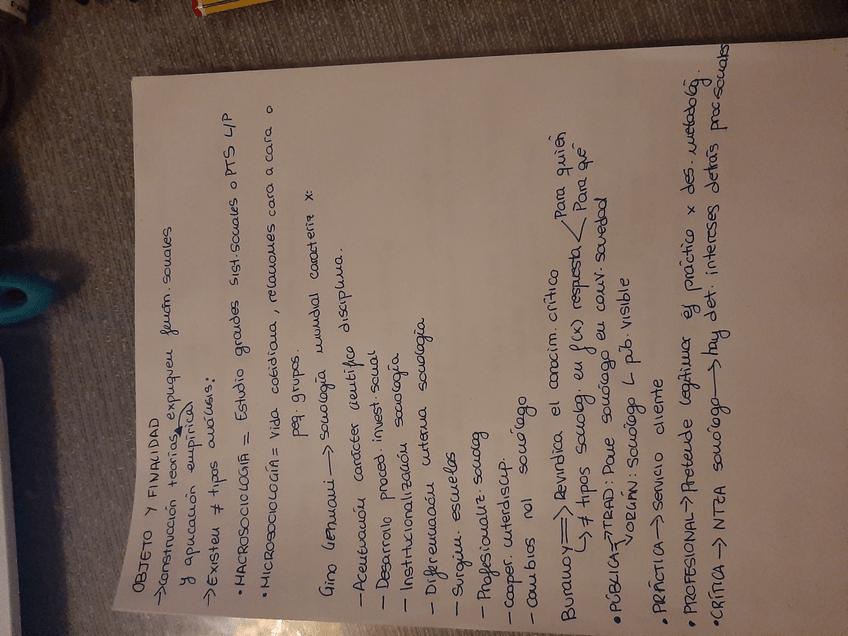 OBJETO Y FINALIDAD
→ construcción teorías expliquen fenóm. sociales
y aplicación empírica
→ Existen ≠ tipos análisis:
• MACROSOCIOLOGÍA = Estudio grandes sist. sociales o PTS L/P
• MICROSOCIOLOGÍA = Vida cotidiana, relaciones cara a cara o
peq. grupos.
Gino Germani → sociología mundial caracteriz x:
- Acentuación carácter científico disciplina.
- Desarrollo proced. invest. social
- Institucionalización sociología
- Diferenciación interna sociología
- Surgim. escuelas
- Profesionaliz. sociolog
- Cooper. interdiscip.
- Cambios rol sociólogo
Burawoy ⇒ Reivindica el conocim. crítico
↳ ≠ tipos sociolog. en f(x) respuesta < Para quién
Para qué
• PÚBLICA ⇒ TRAD: Pone sociólogo en conv. sociedad
↘ ORGÁN: sociólogo L púb. visible
• PRÁCTICA → servicio cliente
• PROFESIONAL → Pretende legitimar ej práctico x des. metodológ.
• CRÍTICA → NTZA sociólogo → hay det. intereses detrás proc. sociales